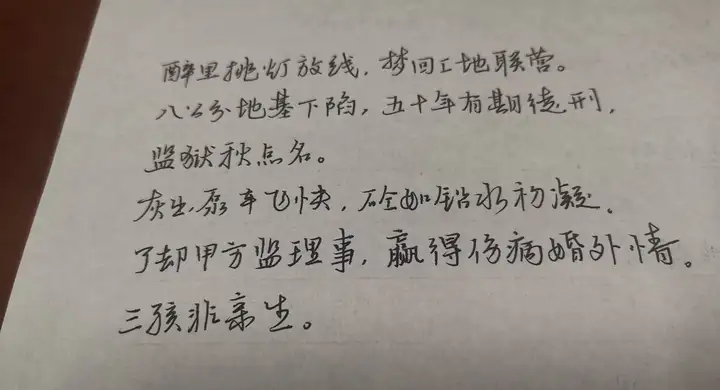 醉里挑灯放线，梦回工地联营。
八公分地基下陷，五十年有期徒刑，
监狱秋点名。
灰尘泵车飞快，砼如铅水初凝，
了却甲方监理事，赢得伤病婚外情。
三孩非亲生。